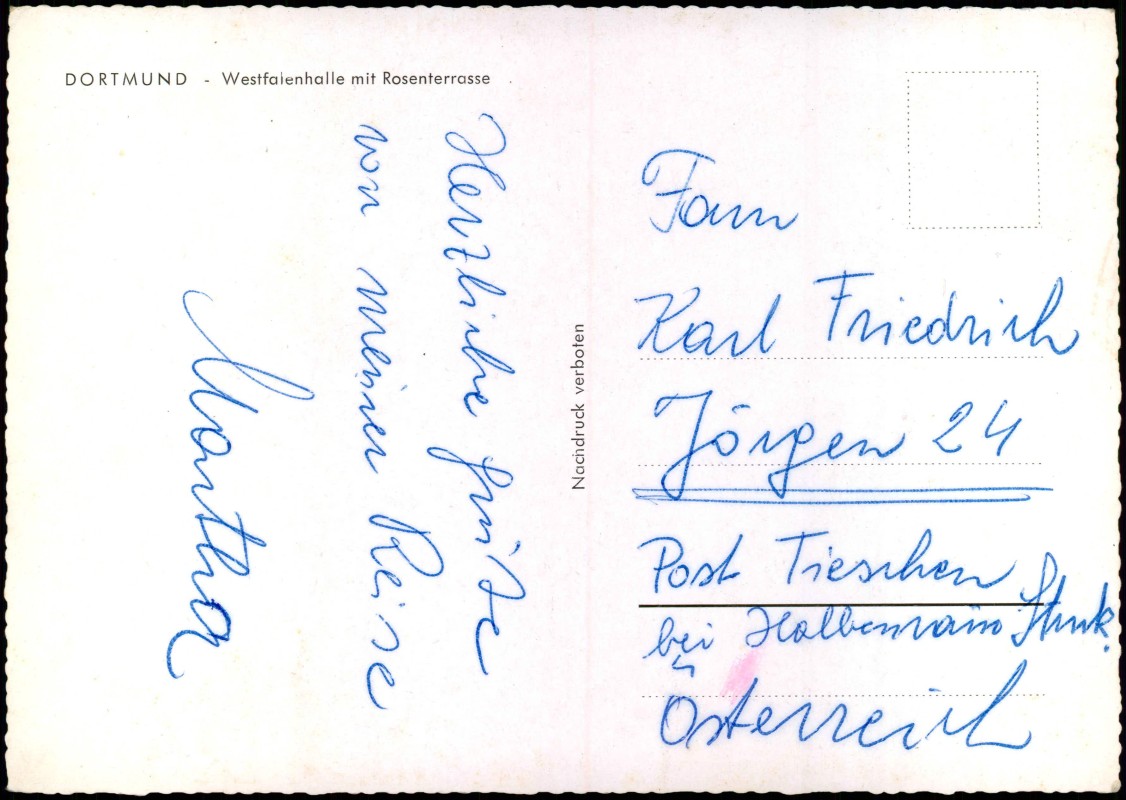 DORTMUND - Westfalenhalle mit Rosenterrasse
Herzliche Grüße
von meiner Reise
Martha
Nachdruck verboten
Fam
Karl Friedrich
Jörgen 24
Post Tieschen
bei Halbenrain Stmk.
Österreich